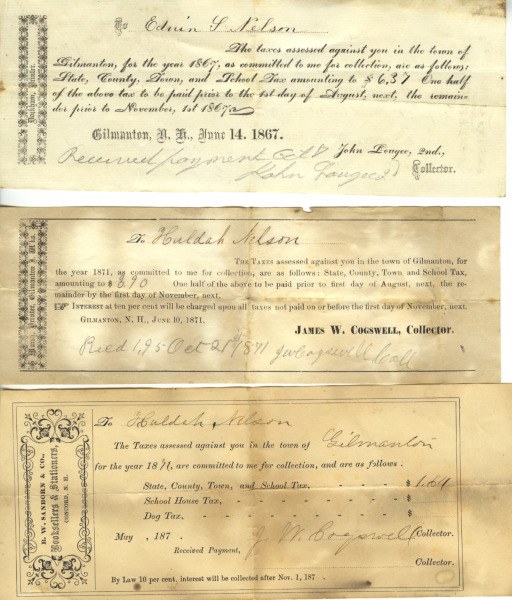 To Edwin S. Nelson
The taxes assessed against you in the town of
Gilmanton, for the year 1867, as committed to me for collection, are as follows:
State, County, Town, and School Tax amounting to $ 6,37 One half
of the above tax to be paid prior to the 1st day of August, next, the remain-
der prior to November, 1st 1867.
Gilmanton, N. H., June 14. 1867.
John Lougee, 2nd,
Collector.
Received payment Oct 8
John Lougee 2d
To Huldah Nelson
The Taxes assessed against you in the town of Gilmanton, for
the year 1871, as committed to me for collection, are as follows: State, County, Town and School Tax,
amounting to $ 3.90 One half of the above to be paid prior to first day of August, next, the re-
mainder by the first day of November, next.
☞ Interest at ten per cent will be charged upon all taxes not paid on or before the first day of November, next.
Gilmanton, N. H., June 10, 1871.
James W. Cogswell, Collector.
Recd 1,95 Oct 21st 1871 J W Cogswell Coll
B. W. SANBORN & CO.,
Booksellers & Stationers,
CONCORD, N. H.
To Huldah Nelson
The Taxes assessed against you in the town of Gilmanton
for the year 187 , are committed to me for collection, and are as follows.
State, County, Town, and School Tax, - - - - $ 1.64
School House Tax, - - - - - - - $
Dog Tax, - - - - - - - - $
May , 187 . J. W. Cogswell Collector.
Received Payment,
Collector.
By Law 10 per cent, interest will be collected after Nov. 1, 187 .